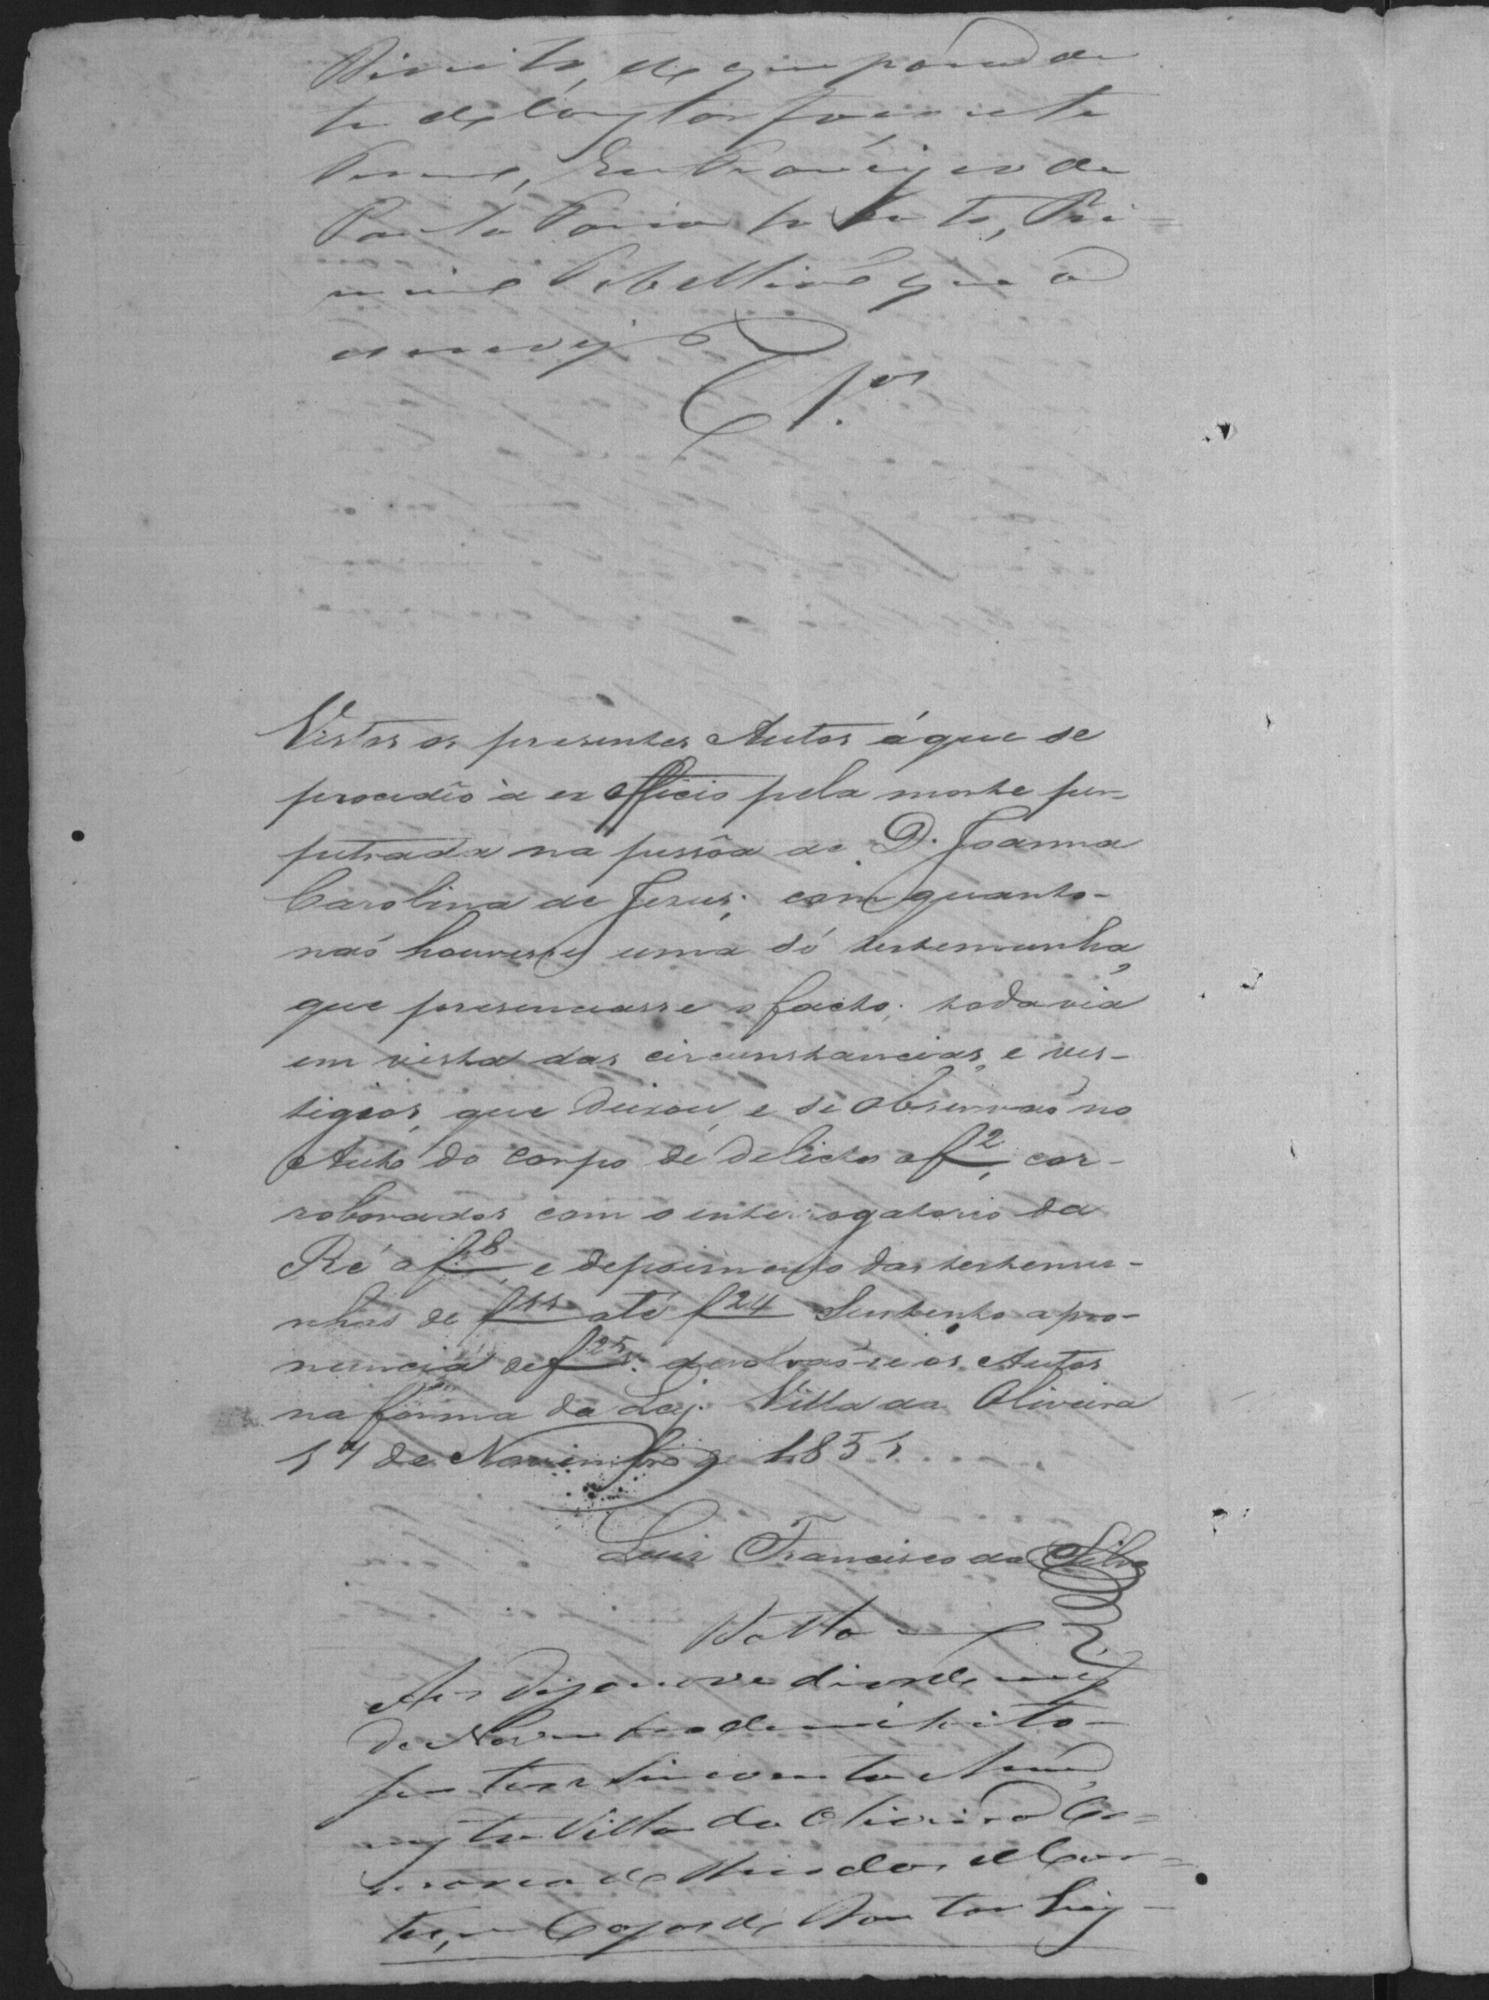 Direito, de que para de
tu de Constar faço este
Termo, Eu Francisco de
Paula
que o
escrevy
Cl.os
Vistos os presentes Autos á que se
procedêo à ex officio pela morte per-
petrada na pessôa de D. Joanna
Carolina de Jesus; com quanto-
naõ houvesse uma só testemunha,
que presenciasse o facto; todavia
em vista das circunstancias, e ves-
tigios, que deixou, e se observaõ no
Auto do corpo de delicto a f 2, cor-
roborados com o interrogatorio da
Ré a f. 8, e depoimento das testemu-
nhas de f 11 até f 24 Sustento a pro-
nuncia de f 25: devolvaõ-se os Autos
na fórma da Lej. Villa da Oliveira
17 de Novembro de 1851
Luiz Francisco da Silva
Datta
Aos dezanove dias do mez
de Novembro de mil oito-
sentos e Sincoenta e hum,
nesta Villa da Oliveira Co-
marca do Rio das
tes, em Cazas do Doutor Luiz